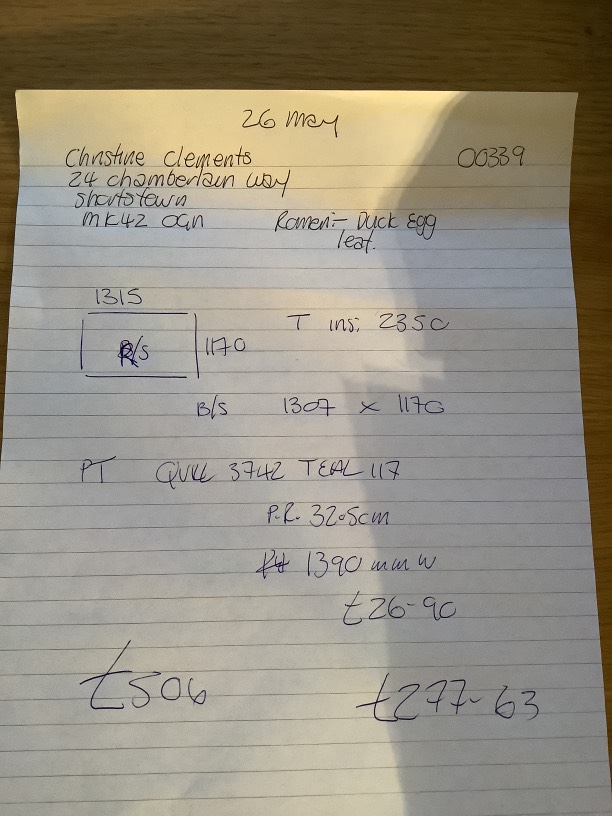 26 May
Christine Clements 00339
24 chamberlain way
shortstown
MK42 0GN Romen:- Duck Egg
leaf.
1315
R/S 1170 T ins: 2350
B/S 1307 x 1170
PT 3742 TEAL 117
P.R. 32.5cm
1390 mm W
£26-90
£506 £277-63